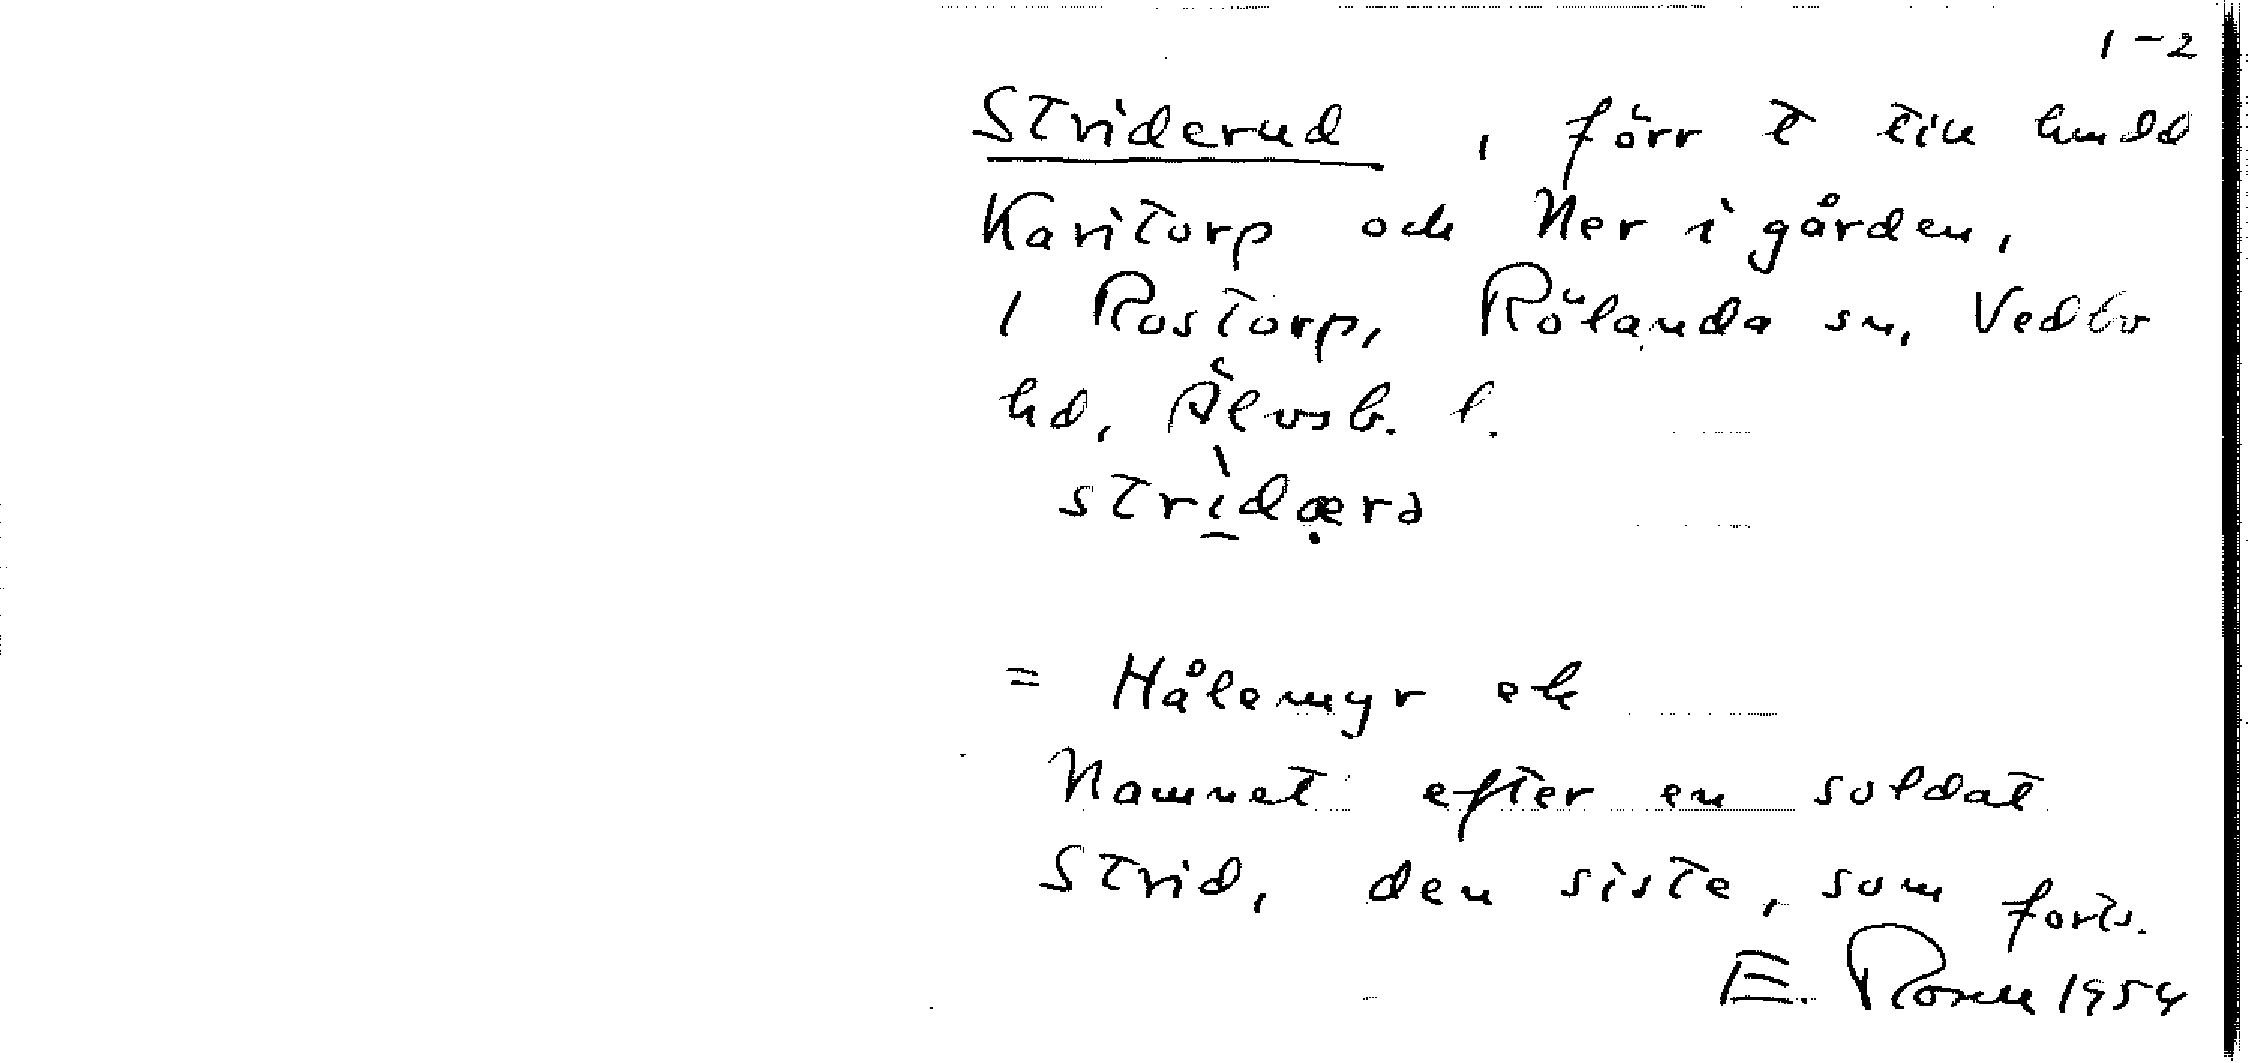 1-2
Striderud, förr t till hundd
Karitorp och Ner i gården,
1 Rostorp, Rölanda sn, Vedbo
hd, Älvsb. l.
stri̱dæ̣rə
= Hålemyr ek
Namnet efter en soldat
Strid, den siste, som forts.
E. Rosell 1954